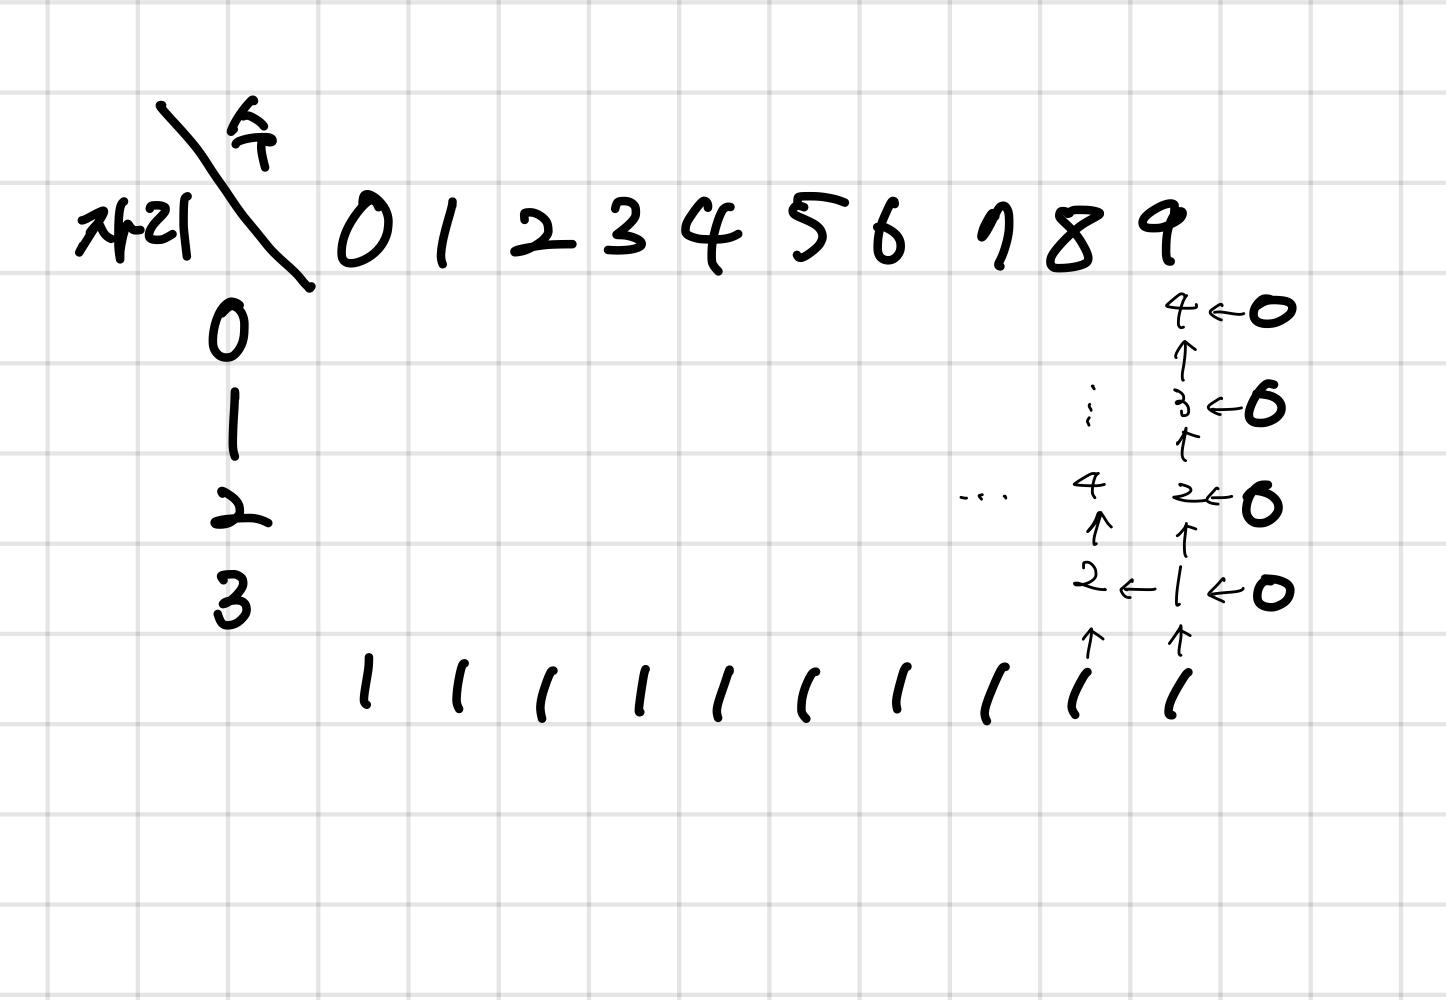 수
자리 0 1 2 3 4 5 6 7 8 9
0 4 ← 0
↑
1 ⋮ 3 ← 0
↑
2 ... 4 2 ← 0
↑ ↑
3 2 ← 1 ← 0
↑ ↑
1 1 1 1 1 1 1 1 1 1